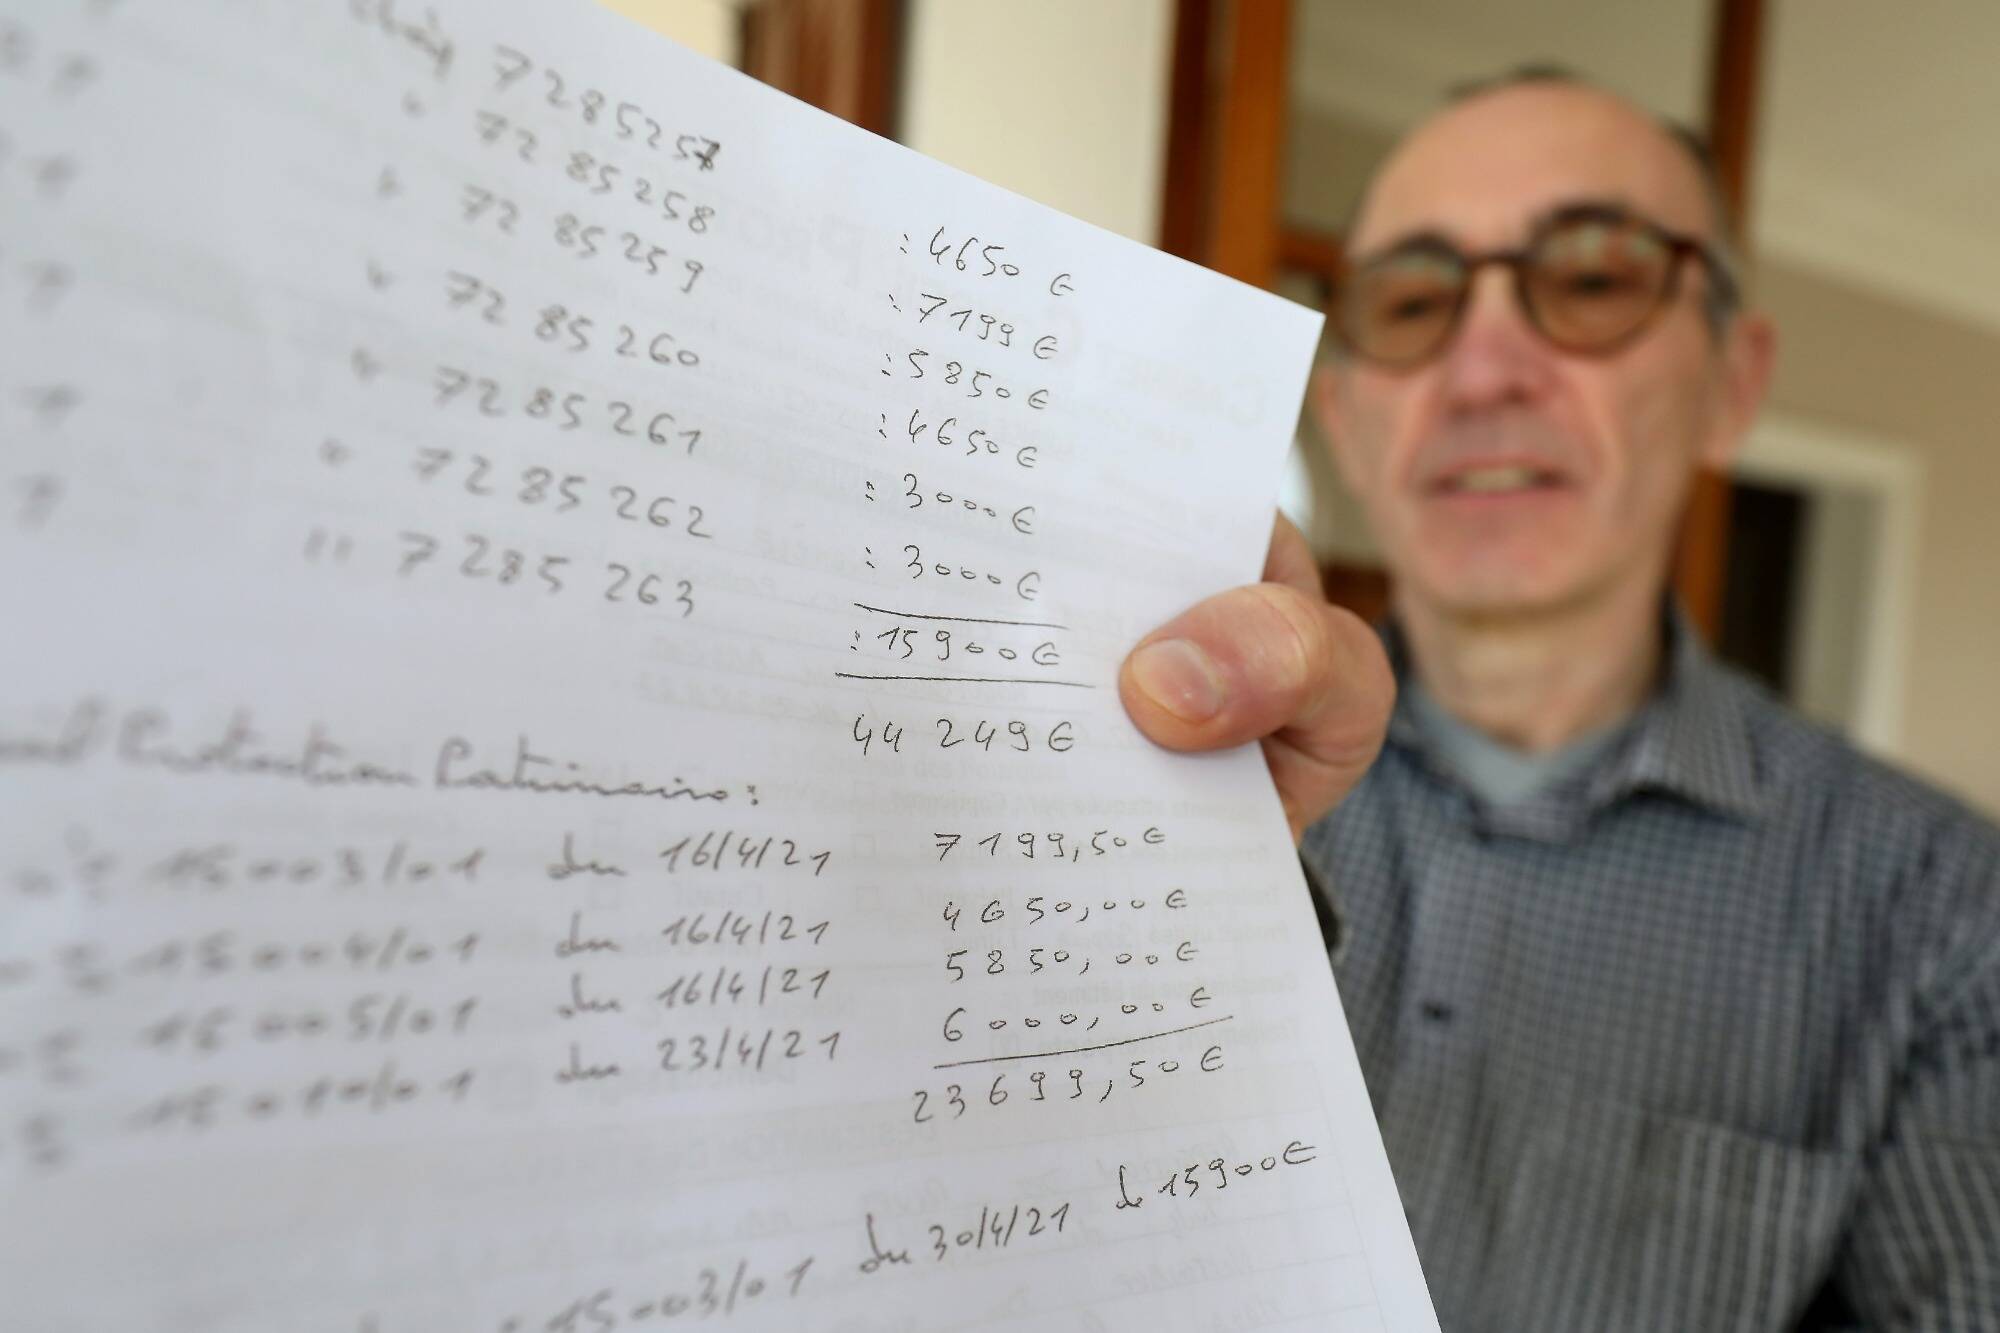 7285257 : 4650 €
" 7285258 : 7199 €
" 7285259 : 5850 €
" 7285260 : 4650 €
" 7285261 : 3000 €
" 7285262 : 3000 €
" 7285263 : 15900 €
44 249 €
Protection Patrimoine :
15003/01 du 16/4/21 7199,50 €
15004/01 du 16/4/21 4650,00 €
15005/01 du 16/4/21 5850,00 €
15010/01 du 23/4/21 6000,00 €
23699,50 €
15003/01 du 30/4/21 de 15900 €